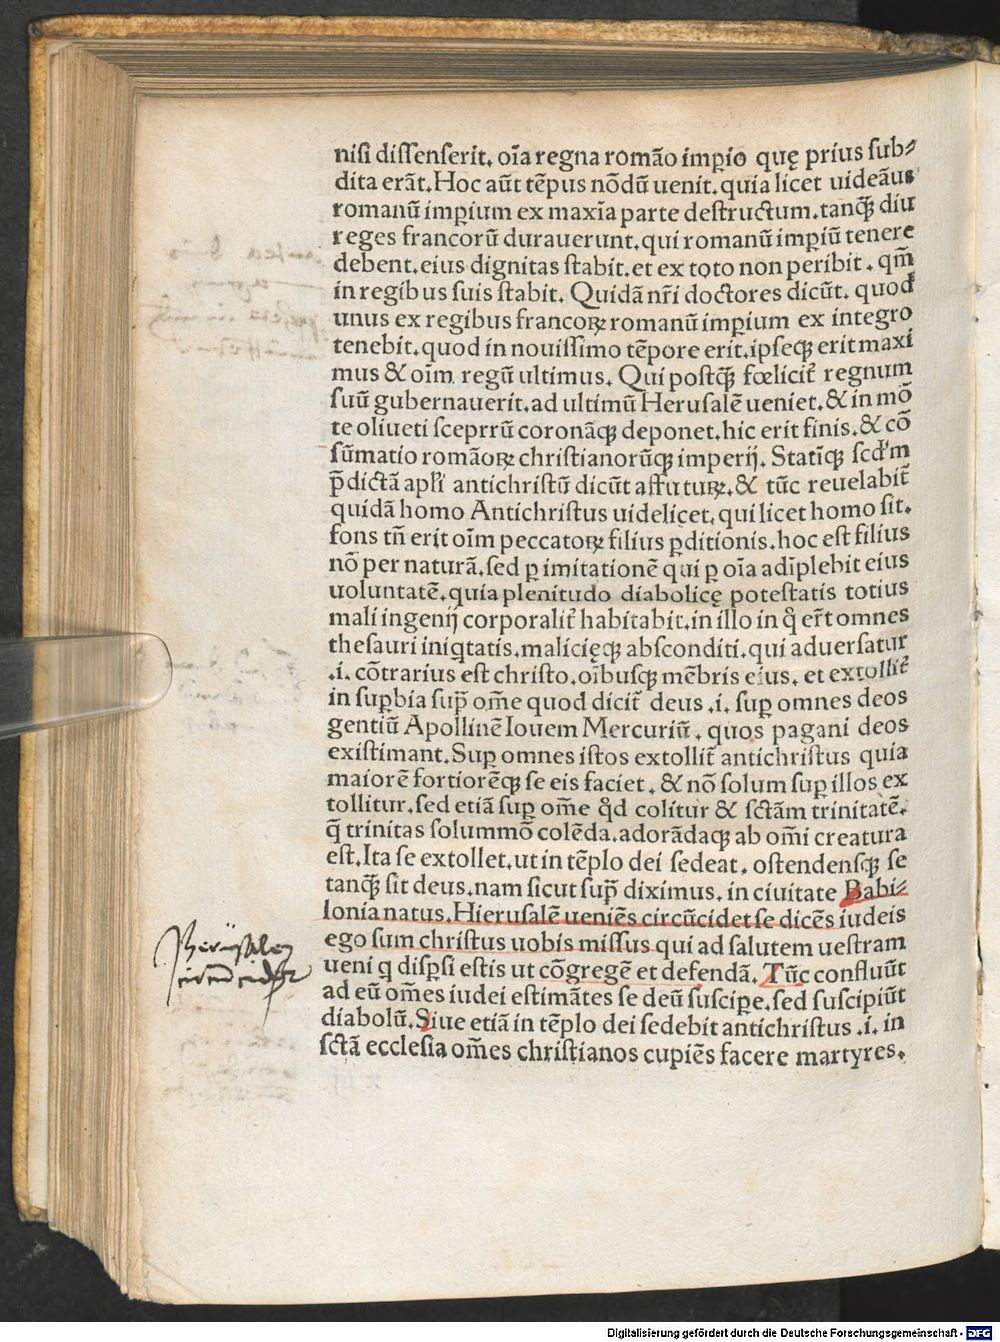 nisi dissenserit. oīa regna romāo imꝑio quę prius sub⸗
dita erāt. Hoc aūt tēpus nōdū uenit. quia licet uideāus
romanū imꝑium ex maxīa parte destructum. tanꝙ̄ diu
reges francorū durauerunt. qui romanū impiū tenere
debent. eius dignitas stabit. et ex toto non peribit. qm̄
in regibus suis stabit. Quidā nr̄i doctores dicūt. quod
unus ex regibus francoꝝ romanū imꝑium ex integro
tenebit. quod in nouissimo tēpore erit. ipseqꝫ erit maxi
mus & oīm regū ultimus. Qui postꝙ̄ fœlicit̄ regnum
suū gubernauerit. ad ultimū Herusalē ueniet. & in mō
te oliueti sceprrū coronāqꝫ deponet. hic erit finis. & cō
sūmatio romāoꝝ christianorūqꝫ imperij. Statīqꝫ scd'm
p̄dictā apl'i antichristū dicūt affuturꝝ. & tūc reuelabit̄
quidā homo Antichristus uidelicet. qui licet homo sit.
fons tn̄ erit oīm peccatoꝝ filius ꝑditionis. hoc est filius
nō per naturā. sed ꝑ imitationē qui ꝑ oīa adīplebit eius
uoluntatē. quia plenitudo diabolicę potestatis totius
mali ingenij corporalit̄ habitabit. in illo in q̊ er̄t omnes
thesauri iniqtatis. malicięqꝫ absconditi. qui aduersatur
.i. cōtrarius est christo. oībusqꝫ mēbris eius. et extollit̄
in suꝑbia sup̄ om̄e quod dicit̄ deus .i. suꝑ omnes deos
gentiū Apollinē Iouem Mercuriū. quos pagani deos
existimant. Suꝑ omnes istos extollit̄ antichristus quia
maiorē fortiorēqꝫ se eis faciet. & nō solum suꝑ illos ex
tollitur. sed etiā suꝑ om̄e q̊d colitur & sctām trinitatē.
q̄ trinitas solummō colēda. adorādaqꝫ ab om̄i creatura
est. Ita se extollet. ut in tēplo dei sedeat. ostendensqꝫ se
tanꝙ̄ sit deus. nam sicut sup̄ diximus. in ciuitate Babi⸗
lonia natus. Hierusalē ueniēs circūcidet se dicēs iudeis
ego sum christus uobis missus qui ad salutem uestram
ueni q disꝑsi estis ut cōgregē et defendā. Tūc confluūt
ad eū om̄es iudei estimātes se deū suscipe. sed suscipiūt
diabolū. Siue etiā in tēplo dei sedebit antichristus .i. in
sctā ecclesia om̄es christianos cupiēs facere martyres.
Digitalisierung gefördert durch die Deutsche Forschungsgemeinschaft - DFG